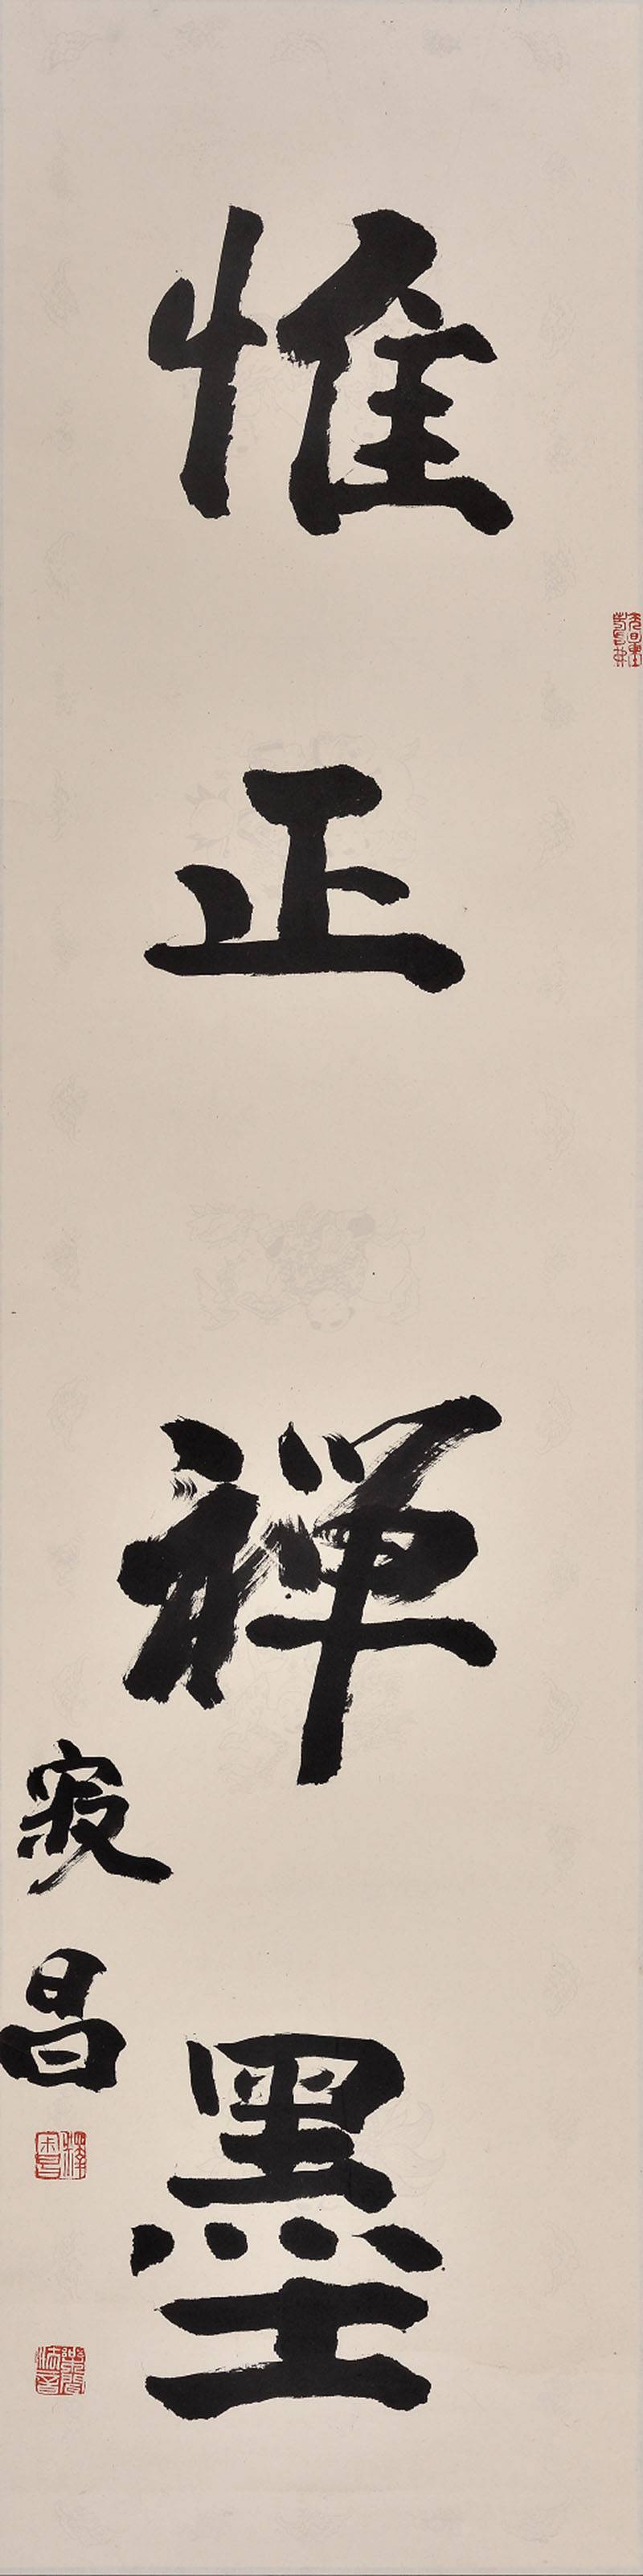 惟正禅墨
寂昌